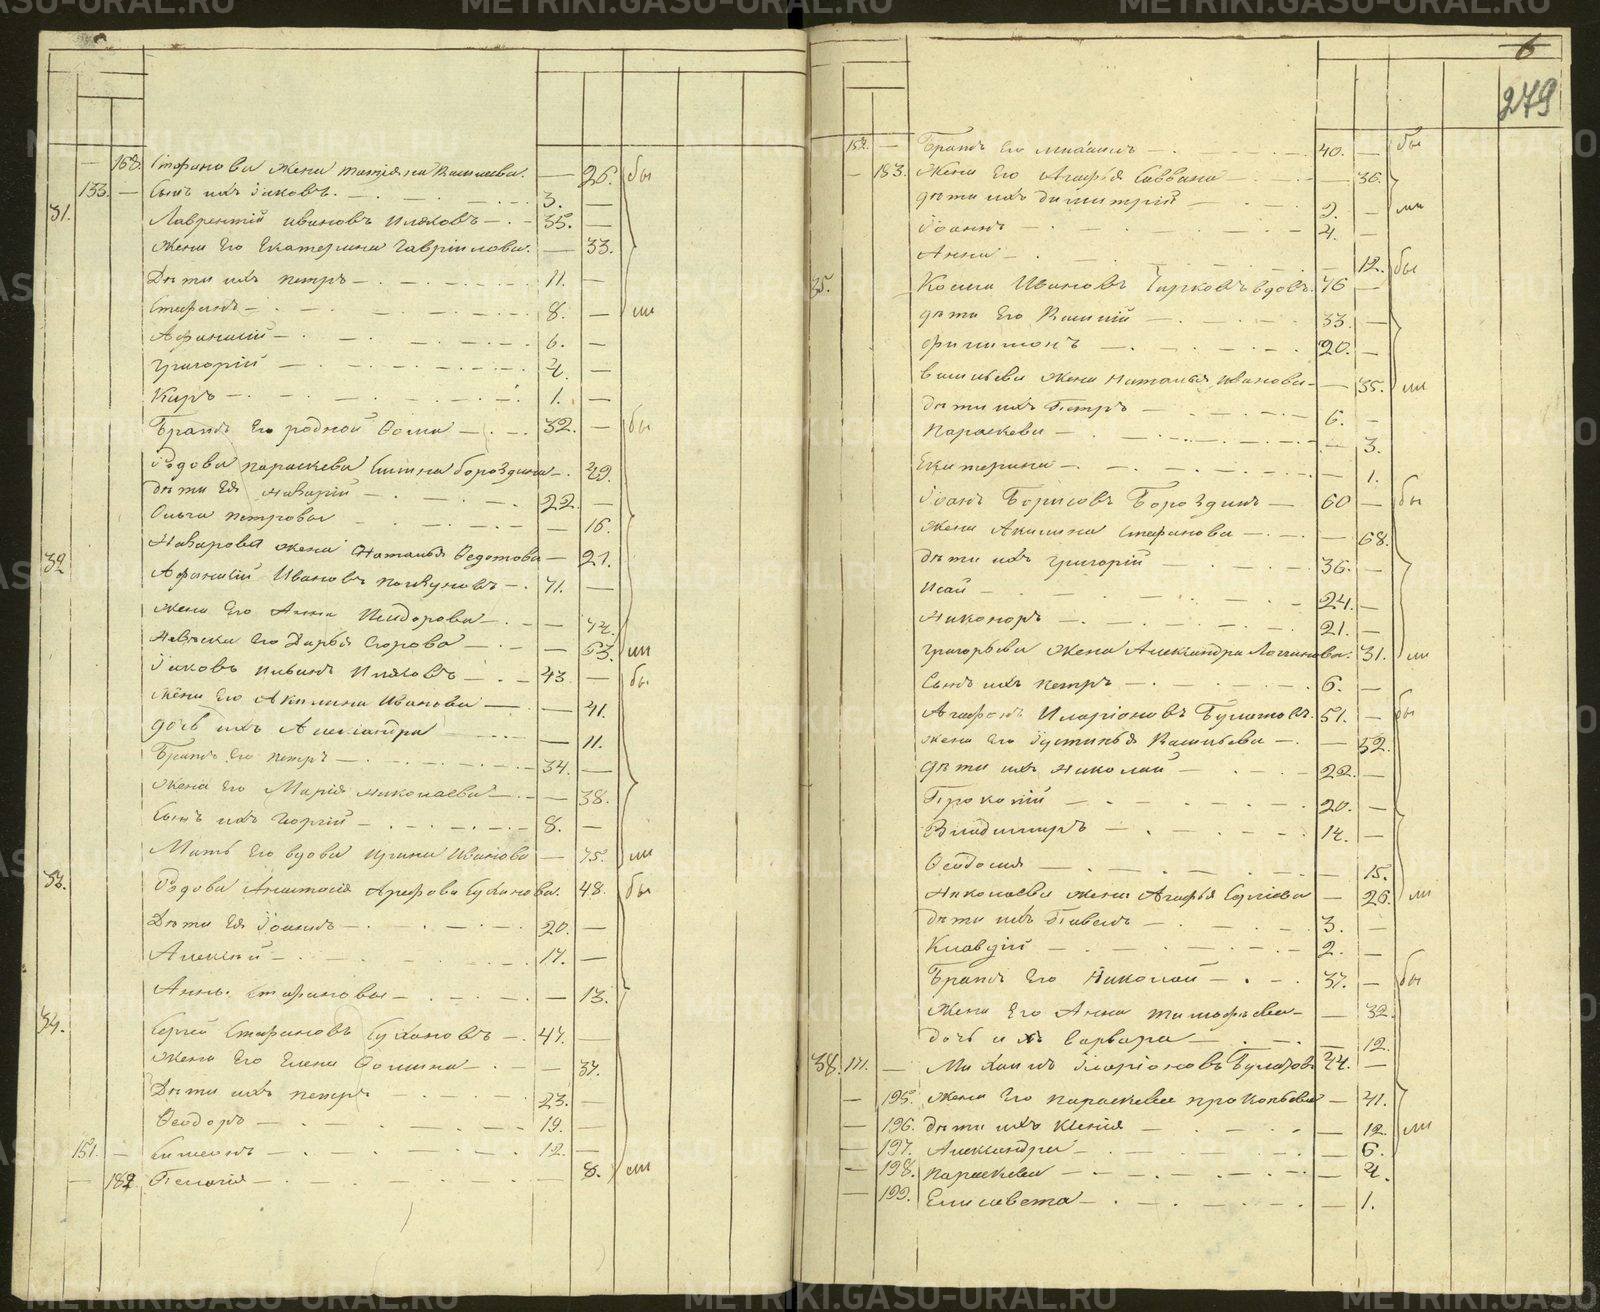 168. Стефанова жена Татіяна Васильева. — 26. бы
133. — Сынъ ихъ Іаковъ. 3. —
31. Лаврентій Ивановъ Иляковъ — 35. —
Жена Его Екатерина Гавріилова. — 33.
Дѣти ихъ Петръ — 11. —
Стефанъ — 8. — ли
Афанасій — 6. —
Григорій — 4. —
Киръ — 1. —
Братъ Его родной Ѳома — 32. — бы
Вдова Параскева Бороздина — 49.
Дѣти Ея Назарій — 22. —
Ольга Петровы — 16.
Назарова жена Наталья Ѳедотова — 21.
32 Афанасій Ивановъ — 71. —
Жена Его Анна Исидорова — 74.
Невѣстка Его Дарья Егорова — 63. ли
Іаковъ Иляковъ — 43. — бы
Жена Его Акилина Иванова — 41.
Дочь ихъ Александра — 11.
Братъ Его Петръ — 34. —
Жена Его Марія Николаева — 38.
Сынъ ихъ Георгій — 8. —
Мать Его вдова Ирина Иванова — 75. ли
33. Вдова Анастасія Арефова Суханова. 48. бы
Дѣти Ея Іоаннъ — 20. —
Алексѣй — 17. —
Анна. Стефановы — 13.
34. Сергей Стефановъ Сухановъ — 47. —
Жена Его Елена Ѳомина — 37.
Дѣти ихъ Петръ 23. —
Ѳеодоръ — 19. —
151. — Симеонъ — 12. —
— 182 Пелагія — 8. ли
6
279
152. — Братъ Его Михаилъ — 40. — бы
— 183. Жена Его Агафья Саввина — 36.
Дѣти ихъ Димитрій — 9. — ли
Іоаннъ — 4. —
Анна — 12. бы
35. Косма Ивановъ Чирковъ вдовъ. 76 —
Дѣти Его Василій — 33. —
Филимонъ — 20. —
Васильева жена Наталья Иванова — 35. ли
Дѣти ихъ Петръ — 6. —
Параскева — 3.
Екатерина — 1.
Іоаннъ Борисовъ Бороздинъ — 60 — бы
Жена Акилина Стефанова — 68.
Дѣти ихъ Григорій — 36. —
Исай — 24. —
Никоноръ — 21. —
Григорьева жена Александра Логинова. 31. ли
Сынъ ихъ Петръ — 6. —
Агафонъ Иларіоновъ Булатовъ. 51. — бы
Жена Его Іустинья Васильева — 52.
Дѣти ихъ Николай — 22. —
Прокопій — 20. —
Владимиръ — 14. —
Ѳеодосія — 15.
Николаева жена Агафья Сергіева — 26. ли
Дѣти ихъ Павелъ — 3. —
Клавдій — 2. —
Братъ Его Николай — 37. — бы
Жена Его Анна Тимофѣева — 32.
Дочь ихъ Варвара — 12.
38. 171. — Михаилъ Иларіоновъ Булатовъ 44. —
— 195. Жена Его Параскева Прокопьева — 41.
— 196. Дѣти ихъ Ксенія — 12. ли
— 197. Александра — 6.
— 198. Параскева — 4.
— 199. Елисавета — 1.
METRIKI.GASO-URAL.RU